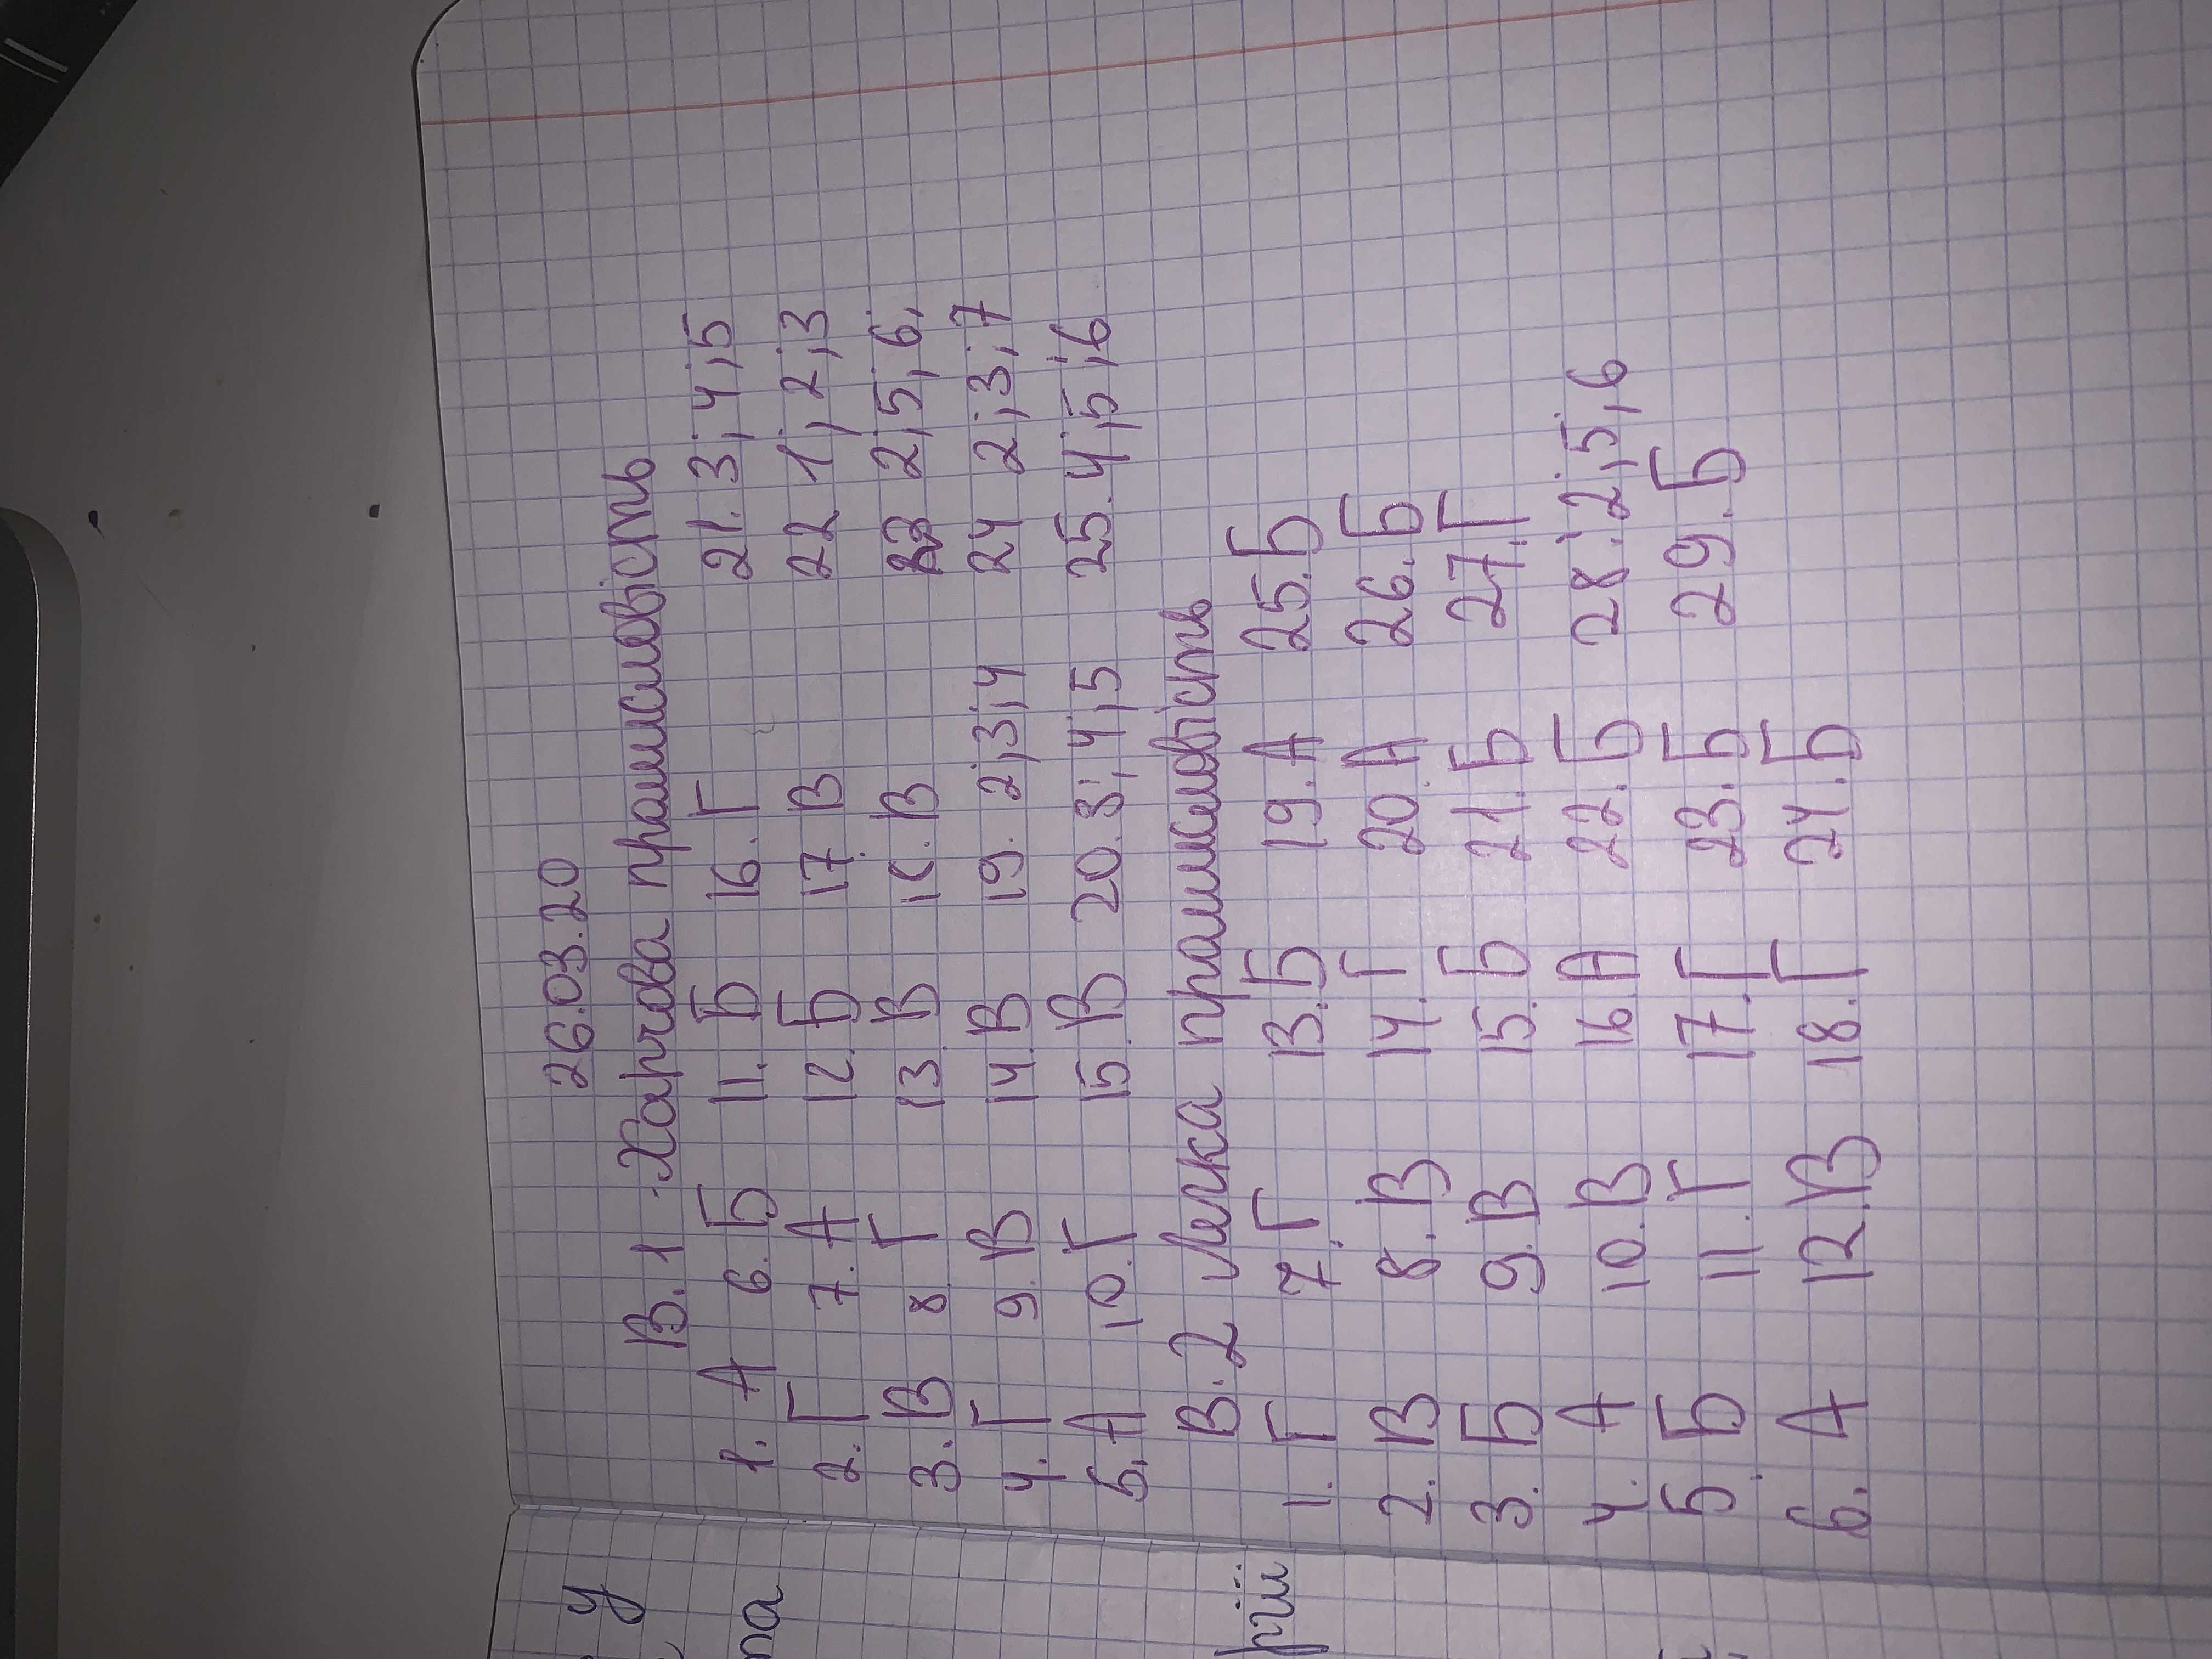 26.03.20
В.1 Харчова промисловість
1. А 6. Б 11. Б 16. Г 21. 3; 4; 5
2. Г 7. А 12. Б 17. В 22 1; 2; 3
3. В 8 Г 13 В 18. В 23 2; 5; 6;
4. Г 9. В 14 В 19. 2; 3; 4 24 2; 3; 7
5. А 10. Г 15. В 20. 3; 4; 5 25. 4; 5; 6
В. 2 Легка промисловість
1. Г 7. Г 13. Б 19. А 25. Б
2. В 8. В 14. Г 20. А 26. Б
3. Б 9. В 15. Б 21. Б 27. Г
4. А 10. В 16. А 22. Б 28. 2; 5; 6
5. Б 11. Г 17. Г 23. Б 29. Б
6. А 12. В 18. Г 24. Б
у
та
рії